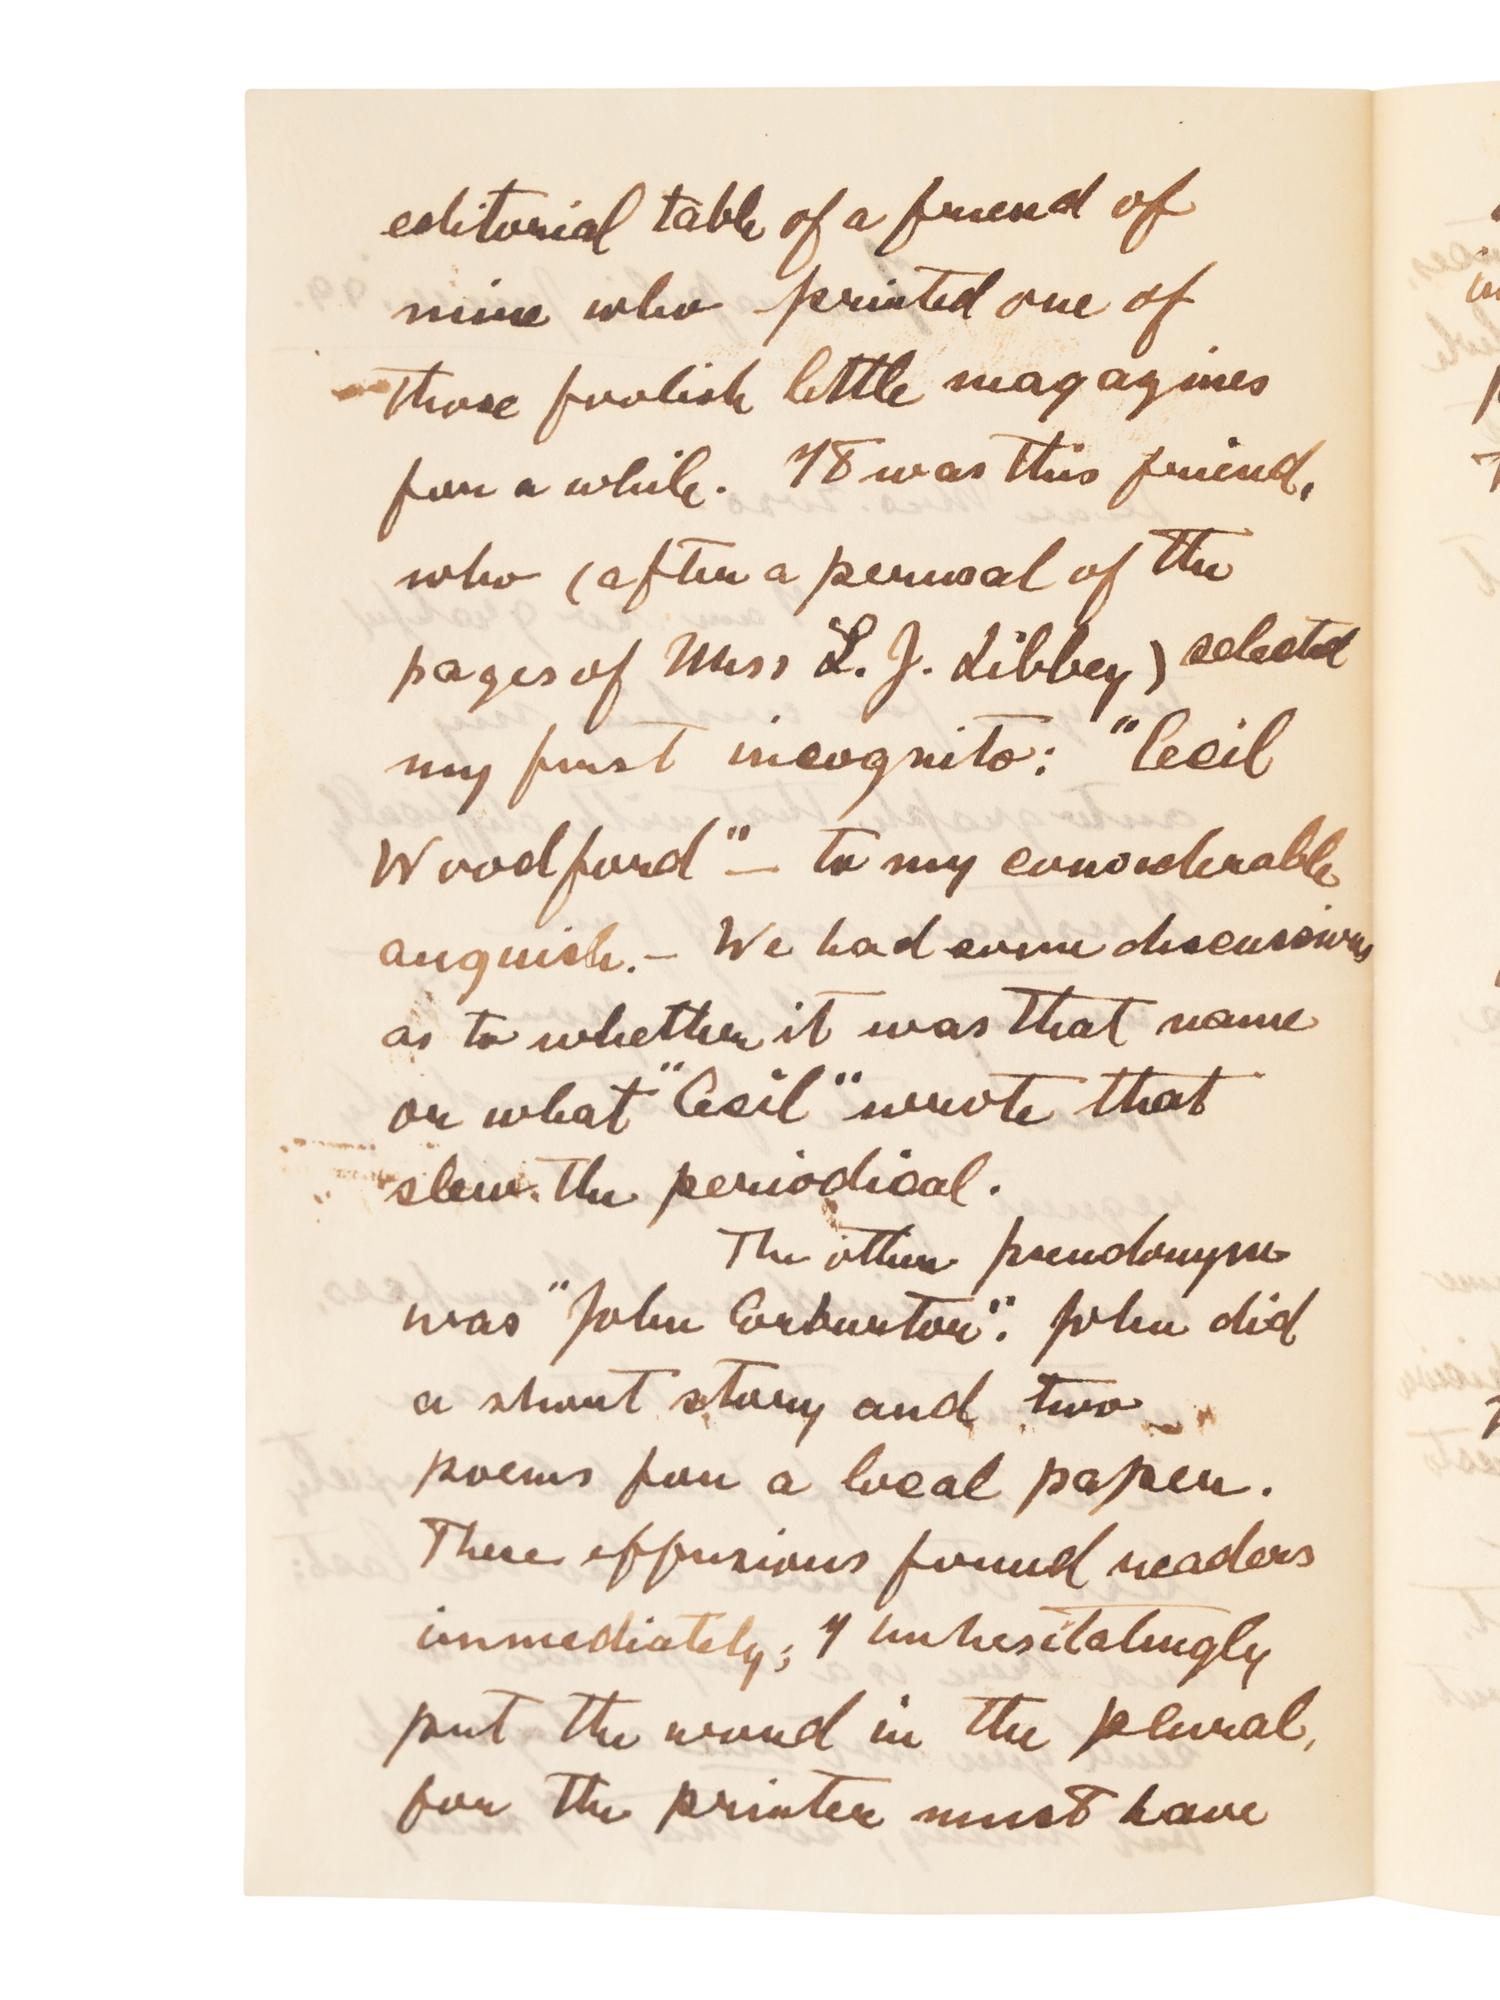 editorial table of a friend of
mine who printed one of
those foolish little magazines
for a while. It was this friend,
who (after a perusal of the
pages of Miss L. J. Libbey) selected
my first incognito: "Cecil
Woodford" — to my considerable
anguish. — We had some discussions
as to whether it was that name
or what "Cecil" wrote that
slew the periodical.
The other pseudonym
was "John Corburton". John did
a short story and two
poems for a local paper.
These effusions found readers
immediately; I unhesitatingly
put the word in the plural,
for the printer must have